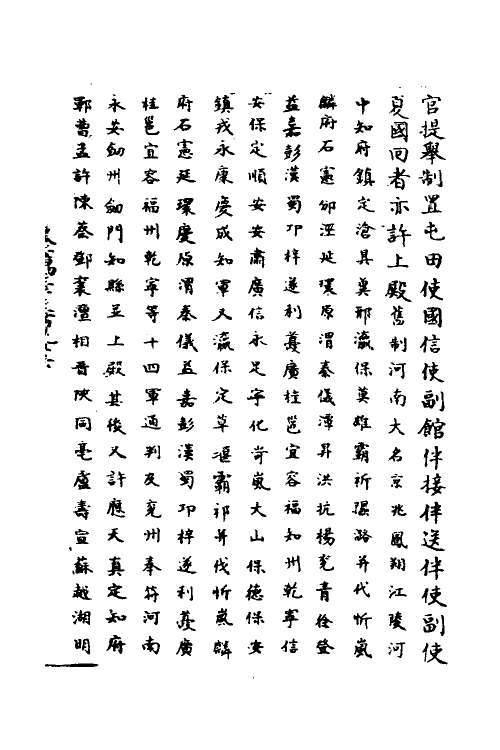 官提舉制置屯田使國信使副館伴接伴送伴使副使
夏國回者亦許上殿舊制河南大名京兆鳳翔江陵河
中知府鎮定滄具冀邢瀛保莫雄霸祈環潞并代忻嵐
麟府石憲邠涇延環原渭秦儀潭昇洪抗楊兗青徐登
益嘉彭漢蜀邛梓遂利蘷廣桂邕宜容福知州乾寧信
安保定順安安肅廣信永足寧化岢嵐大山保德保安
鎮戎永康慶成知軍又瀛保定草深霸祁并伐忻嵐麟
府石憲延環慶原渭秦儀益嘉彭漢蜀邛梓遂利蘷廣
桂邕宜容福州乾寧等十四軍通判及兗州奉符河南
永安劒州劒門知縣並上殿其後又許應天真定知府
鄆曹孟許陳蔡鄧襄澶相晋陜同亳廬壽宣蘇越湖明